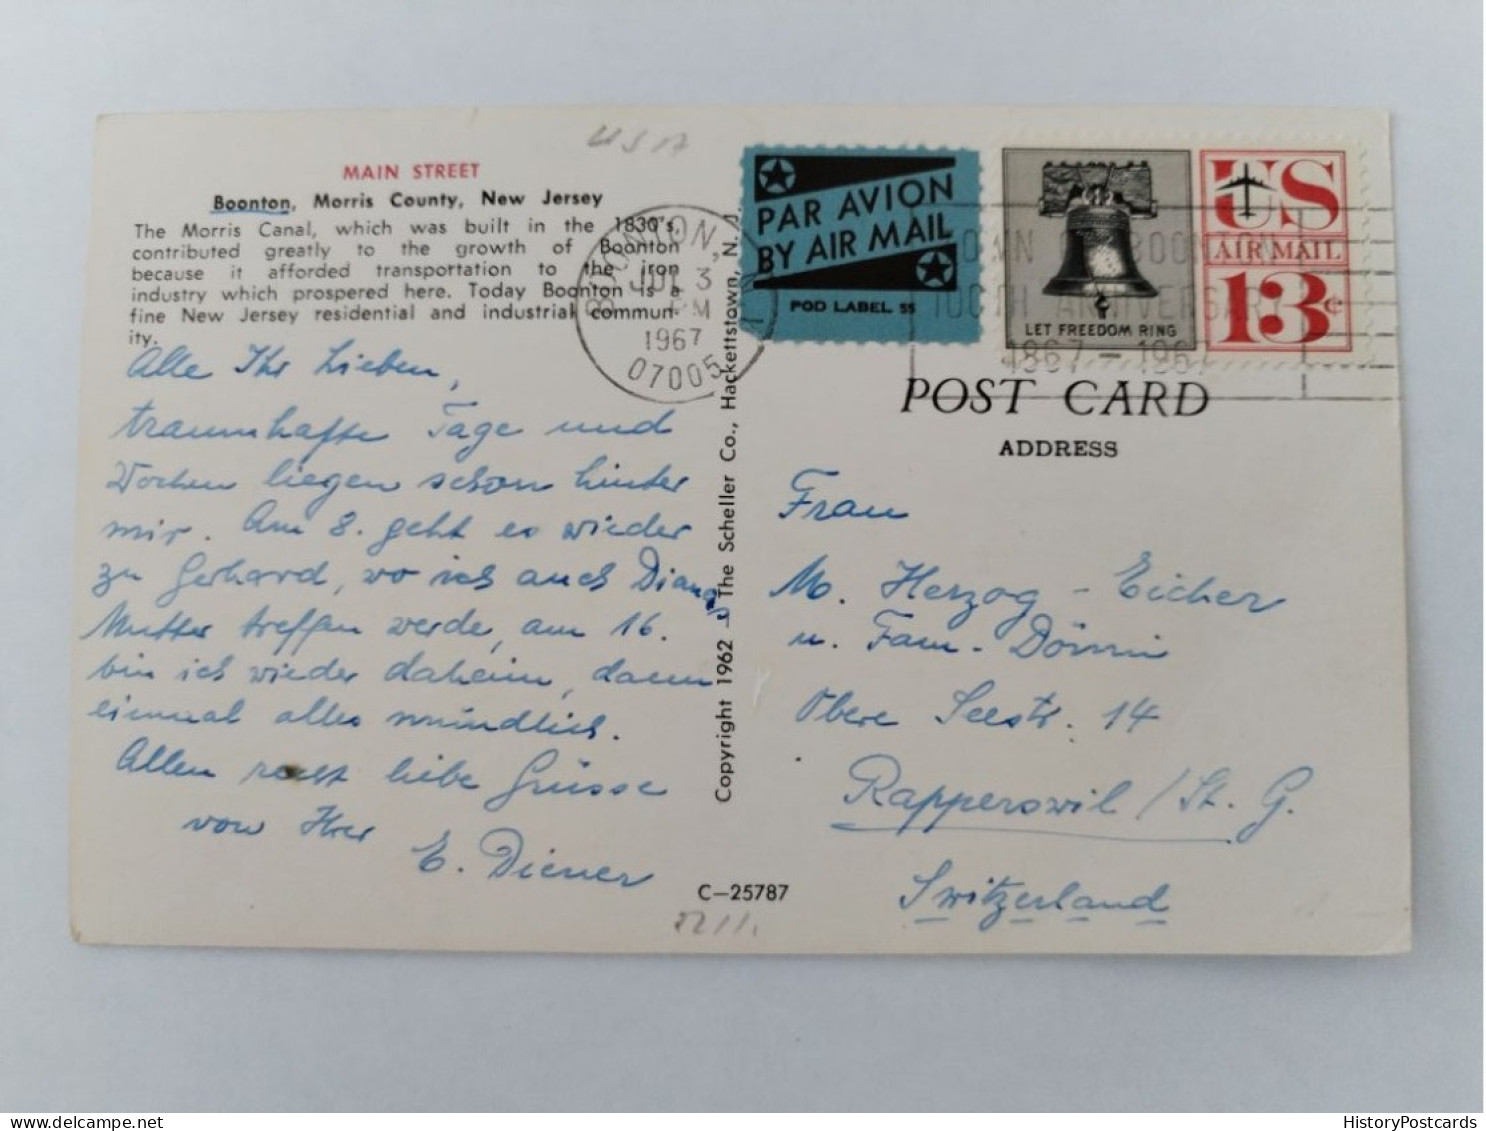 USA
MAIN STREET
Boonton, Morris County, New Jersey
The Morris Canal, which was built in the 1830's,
contributed greatly to the growth of Boonton
because it afforded transportation to the iron
industry which prospered here. Today Boonton is a
fine New Jersey residential and industrial commun-
ity.
Alle Ihr Lieben,
traumhafte Tage und
Wochen liegen schon hinter
mir. Am 8. geht es wieder
zu Gerhard, wo ich auch Dianas
Mutter treffen werde, am 16.
bin ich wieder daheim, dann
einmal alles mündlich.
Allen recht liebe Grüsse
von Ihrer
E. Diener
BOONTON, N.J.
JUL 3
PM
1967
07005
Copyright 1962 – The Scheller Co., Hackettstown, N. J.
C-25787
PAR AVION
BY AIR MAIL
POD LABEL 55
LET FREEDOM RING
US
AIR MAIL
13c
TOWN OF BOONTON
100TH ANNIVERSARY
1867-1967
POST CARD
ADDRESS
Frau
M. Herzog-Eicher
u. Fam. Dörni
Obere Seestr. 14
Rapperswil / St. G.
Switzerland
HistoryPostcards.com